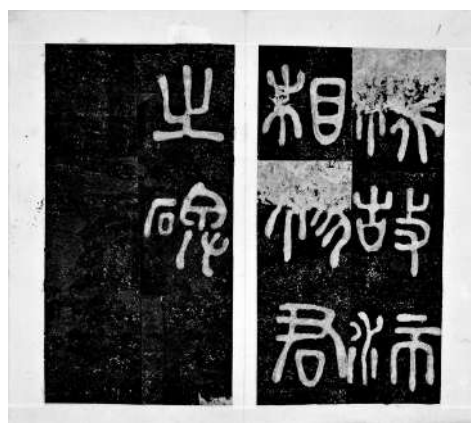 漢故沛
相楊君
之碑